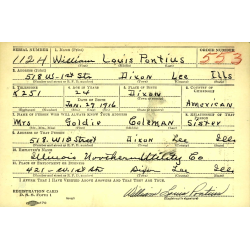 SERIAL NUMBER 1. NAME (Print) ORDER NUMBER
1124 William Louis Pontius 553
2. ADDRESS (Print)
518 W-1st Str Dixon Lee Ills
3. TELEPHONE 4. AGE IN YEARS 5. PLACE OF BIRTH 6. COUNTRY OF CITIZENSHIP
K251 24 Dixon
DATE OF BIRTH
Jan. 27 1916 American
7. NAME OF PERSON WHO WILL ALWAYS KNOW YOUR ADDRESS 8. RELATIONSHIP OF THAT PERSON
Mrs Goldie Coleman Sister
9. ADDRESS OF THAT PERSON
518 W Street Dixon Lee Ills
10. EMPLOYER'S NAME
Illinois Northern Utility Co
11. PLACE OF EMPLOYMENT OR BUSINESS
421 - W 1st Str Dixon Lee Ills
I AFFIRM THAT I HAVE VERIFIED ABOVE ANSWERS AND THAT THEY ARE TRUE.
REGISTRATION CARD
D. S. S. Form 1
William Louis Pontius